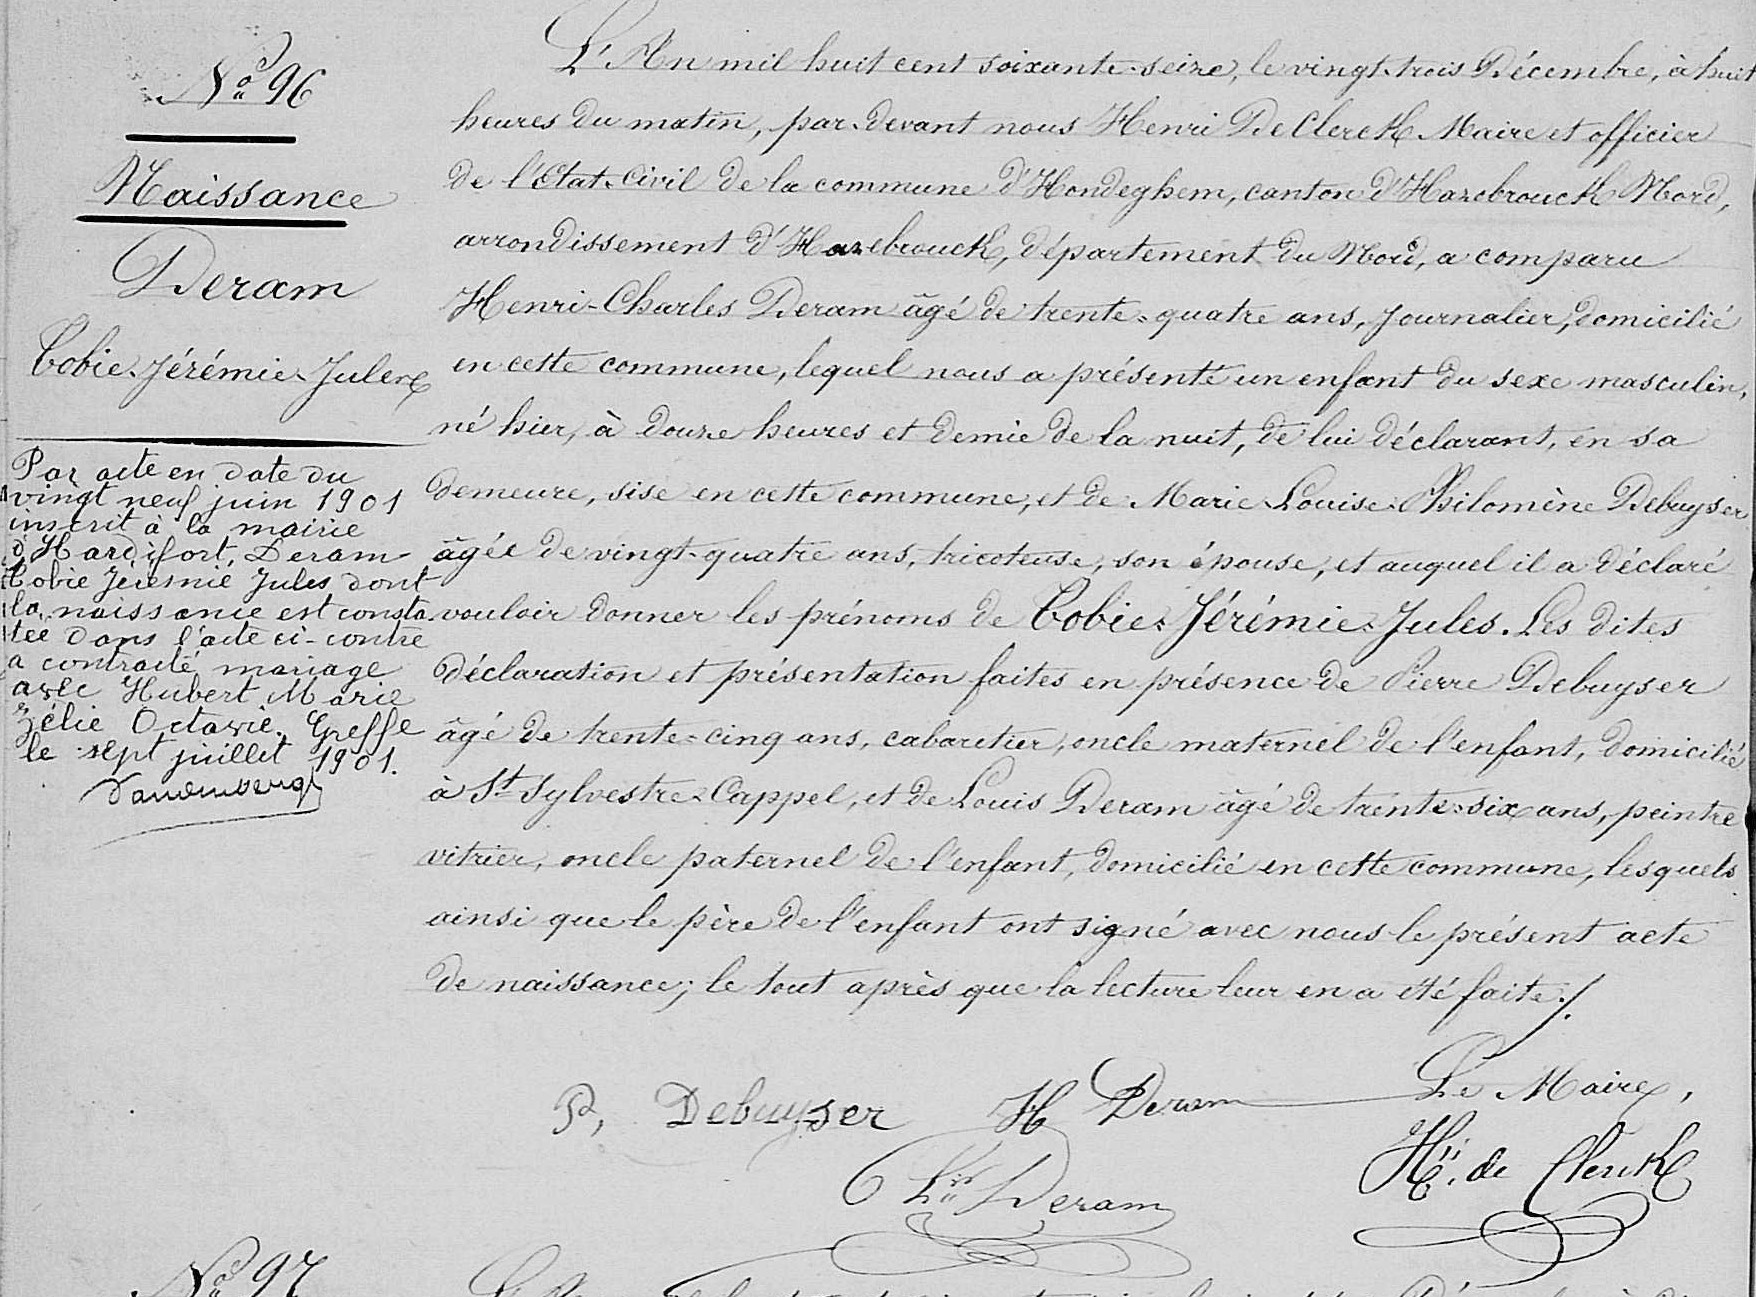 No 96
Naissance
Deram
Tobie-Jérémie-Jules
Par acte en date du
vingt neuf juin 1901
inscrit à la mairie
d'Hardifort, Deram
Tobie Jérémie Jules dont
la naissance est consta
tée dans l'acte ci-contre
a contracté mariage
avec Hubert Marie
Zélie Octavie Greffe
le sept juillet 1901.
L'An mil huit cent soixante-seize, le vingt-trois Décembre, à huit
heures du matin, par-devant nous Henri De Clerck Maire et officier
de l'Etat-Civil de la commune d'Hondeghem, canton d'Hazebrouck Nord,
arrondissement d'Hazebrouck, département du Nord, a comparu
Henri-Charles Deram âgé de trente-quatre ans, Journalier, domicilié
en cette commune, lequel nous a présenté un enfant du sexe masculin,
né hier, à douze heures et demie de la nuit, de lui déclarant, en sa
demeure, sise en cette commune, et de Marie-Louise-Philomène Debuyser
âgée de vingt-quatre ans, tricoteuse, son épouse, et auquel il a déclaré
vouloir donner les prénoms de Tobie-Jérémie-Jules. Les dites
déclaration et présentation faites en présence de Pierre Debuyser
âgé de trente-cinq ans, cabaretier, oncle maternel de l'enfant, domicilié
à St Sylvestre-Cappel, et de Louis Deram âgé de trente-six ans, peintre
vitrier, oncle paternel de l'enfant, domicilié en cette commune, lesquels
ainsi que le père de l'enfant ont signé avec nous le présent acte
de naissance; le tout après que la lecture leur en a été faite./.
P, Debuyser H Deram Le Maire,
Ls Deram Hri de Clerck
No 97